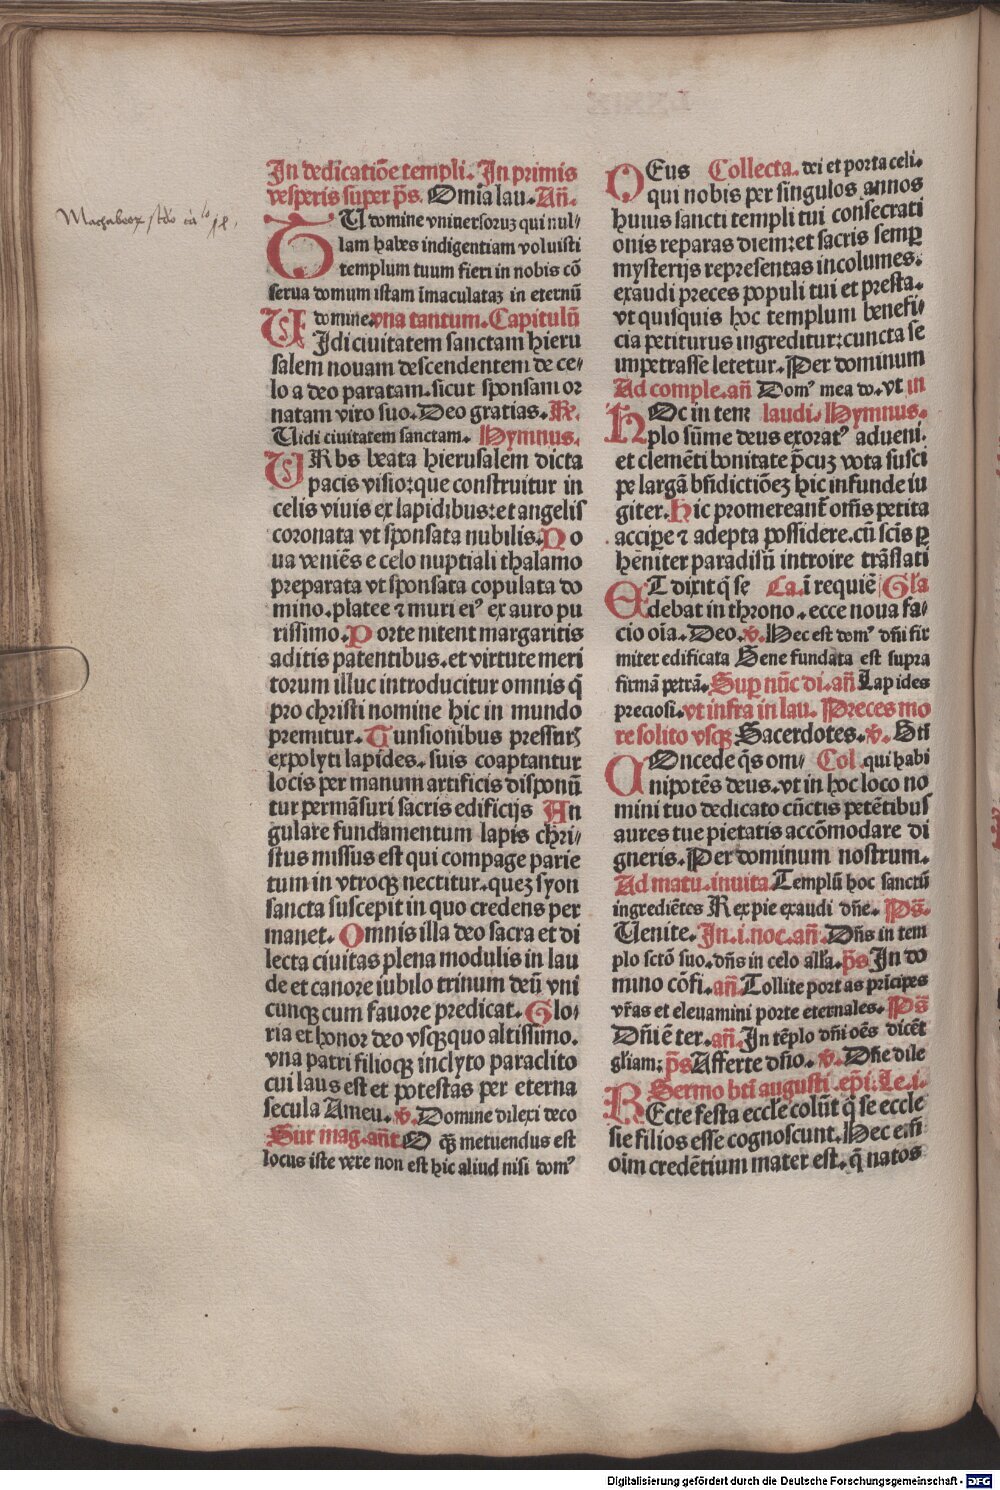 Machabeor scdo ca lo
In dedicatiōe templi. In primis
vesperis super p̄s. Omīa lau. An̄.
TU domine vniuersoruꝫ qui nul⸗
lam habes indigentiam voluisti
templum tuum fieri in nobis cō
serua domum istam īmaculataꝫ in eternū
domine. vna tantum. Capitulū
UIdi ciuitatem sanctam hieru
salem nouam descendentem de ce⸗
lo a deo paratam. sicut sponsam or
natam viro suo. Deo gratias. Re.
Uidi ciuitatem sanctam. Hymnus.
URbs beata hierusalem dicta
pacis visio: que construitur in
celis viuis ex lapidibus: et angelis
coronata vt sponsata nubilis. No
ua veniēs e celo nuptiali thalamo
preparata vt sponsata copulata do
mino. platee ⁊ muri eiꝰ ex auro pu
rissimo. Porte nitent margaritis
aditis patentibus. et virtute meri
torum illuc introducitur omnis q̄
pro christi nomine hic in mundo
premitur. Tunsionibus pressurꝭ
expolyti lapides. suis coaptantur
locis per manum artificis disponū
tur permāsuri sacris edificijs An
gulare fundamentum lapis chri⸗
stus missus est qui compage parie
tum in vtroqꝫ nectitur. queꝫ syon
sancta suscepit in quo credens per
manet. Omnis illa deo sacra et di
lecta ciuitas plena modulis in lau
de et canore iubilo trinum deū vni
cunqꝫ cum fauore predicat. Glo⸗
ria et honor deo vsqꝫquo altissimo.
vna patri filioqꝫ inclyto paraclito
cui laus est et potestas per eterna
secula Ameu. v̄. Domine dilexi deco
Sur mag. an̄t O qꝫ metuendus est
locus iste vere non est hic aliud nisi domꝰ
DEus Collecta. dei et porta celi.
qui nobis per singulos annos
huius sancti templi tui consecrati
onis reparas diem: et sacris semꝑ
mysterijs representas incolumes.
exaudi preces populi tui et presta.
vt quisquis hoc templum benefi⸗
cia petiturus ingreditur: cuncta se
impetrasse letetur. Per dominum
Ad comple. an̄ Domꝰ mea do. vt in
HOc in tem laudi. Hymnus.
plo sūme deus exoratꝰ adueni.
et clemēti bonitate p̄cuꝫ vota susci
pe largā bn̄dictiōeꝫ hic infunde iu
giter. Hic promereant᷑ om̄s petita
accipe ⁊ adepta possidere. cū scīs ꝑ
hēniter paradisū introire trāslati
ET dixit q̄ se Ca. ī requiē Gl̄a
debat in throno. ecce noua fa⸗
cio oīa. Deo. v̄. Hec est domꝰ dn̄i fir
miter edificata Bene fundata est supra
firmā petrā. Suꝑ nūc di. an̄ Lapides
preciosi. vt infra in lau. Preces mo
re solito vsqꝫ Sacerdotes. v̄. Bn̄
COncede q̄s om⸗ Col. qui habi
nipotēs deus. vt in hoc loco no
mini tuo dedicato cūctis petētibus
aures tue pietatis accōmodare di
gneris. Per dominum nostrum.
Ad matu. inuita. Templū hoc sanctū
ingrediētes Rex pie exaudi dn̄e. Ps̄.
Uenite. In. i. noc. an̄. Dn̄s in tem
plo sctō suo. dn̄s in celo all̄a. p̄s In do
mino cōfi. an̄. Tollite portas prīcipes
vr̄as et eleuamini porte eternales. Ps̄
Dn̄i ē ter. an̄. In tēplo dn̄i oēs dicēt
gl̄iam: p̄s Afferte dn̄o. v̄. Dn̄e dile
Sermo bt̄i augusti. ep̄i. Le. i.
REcte festa eccl̄e colūt q̄ se eccl̄e
sie filios esse cognoscunt. Hec e. n̄
oīm credētium mater est. q̄ natos
Digitalisierung gefördert durch die Deutsche Forschungsgemeinschaft - DFG